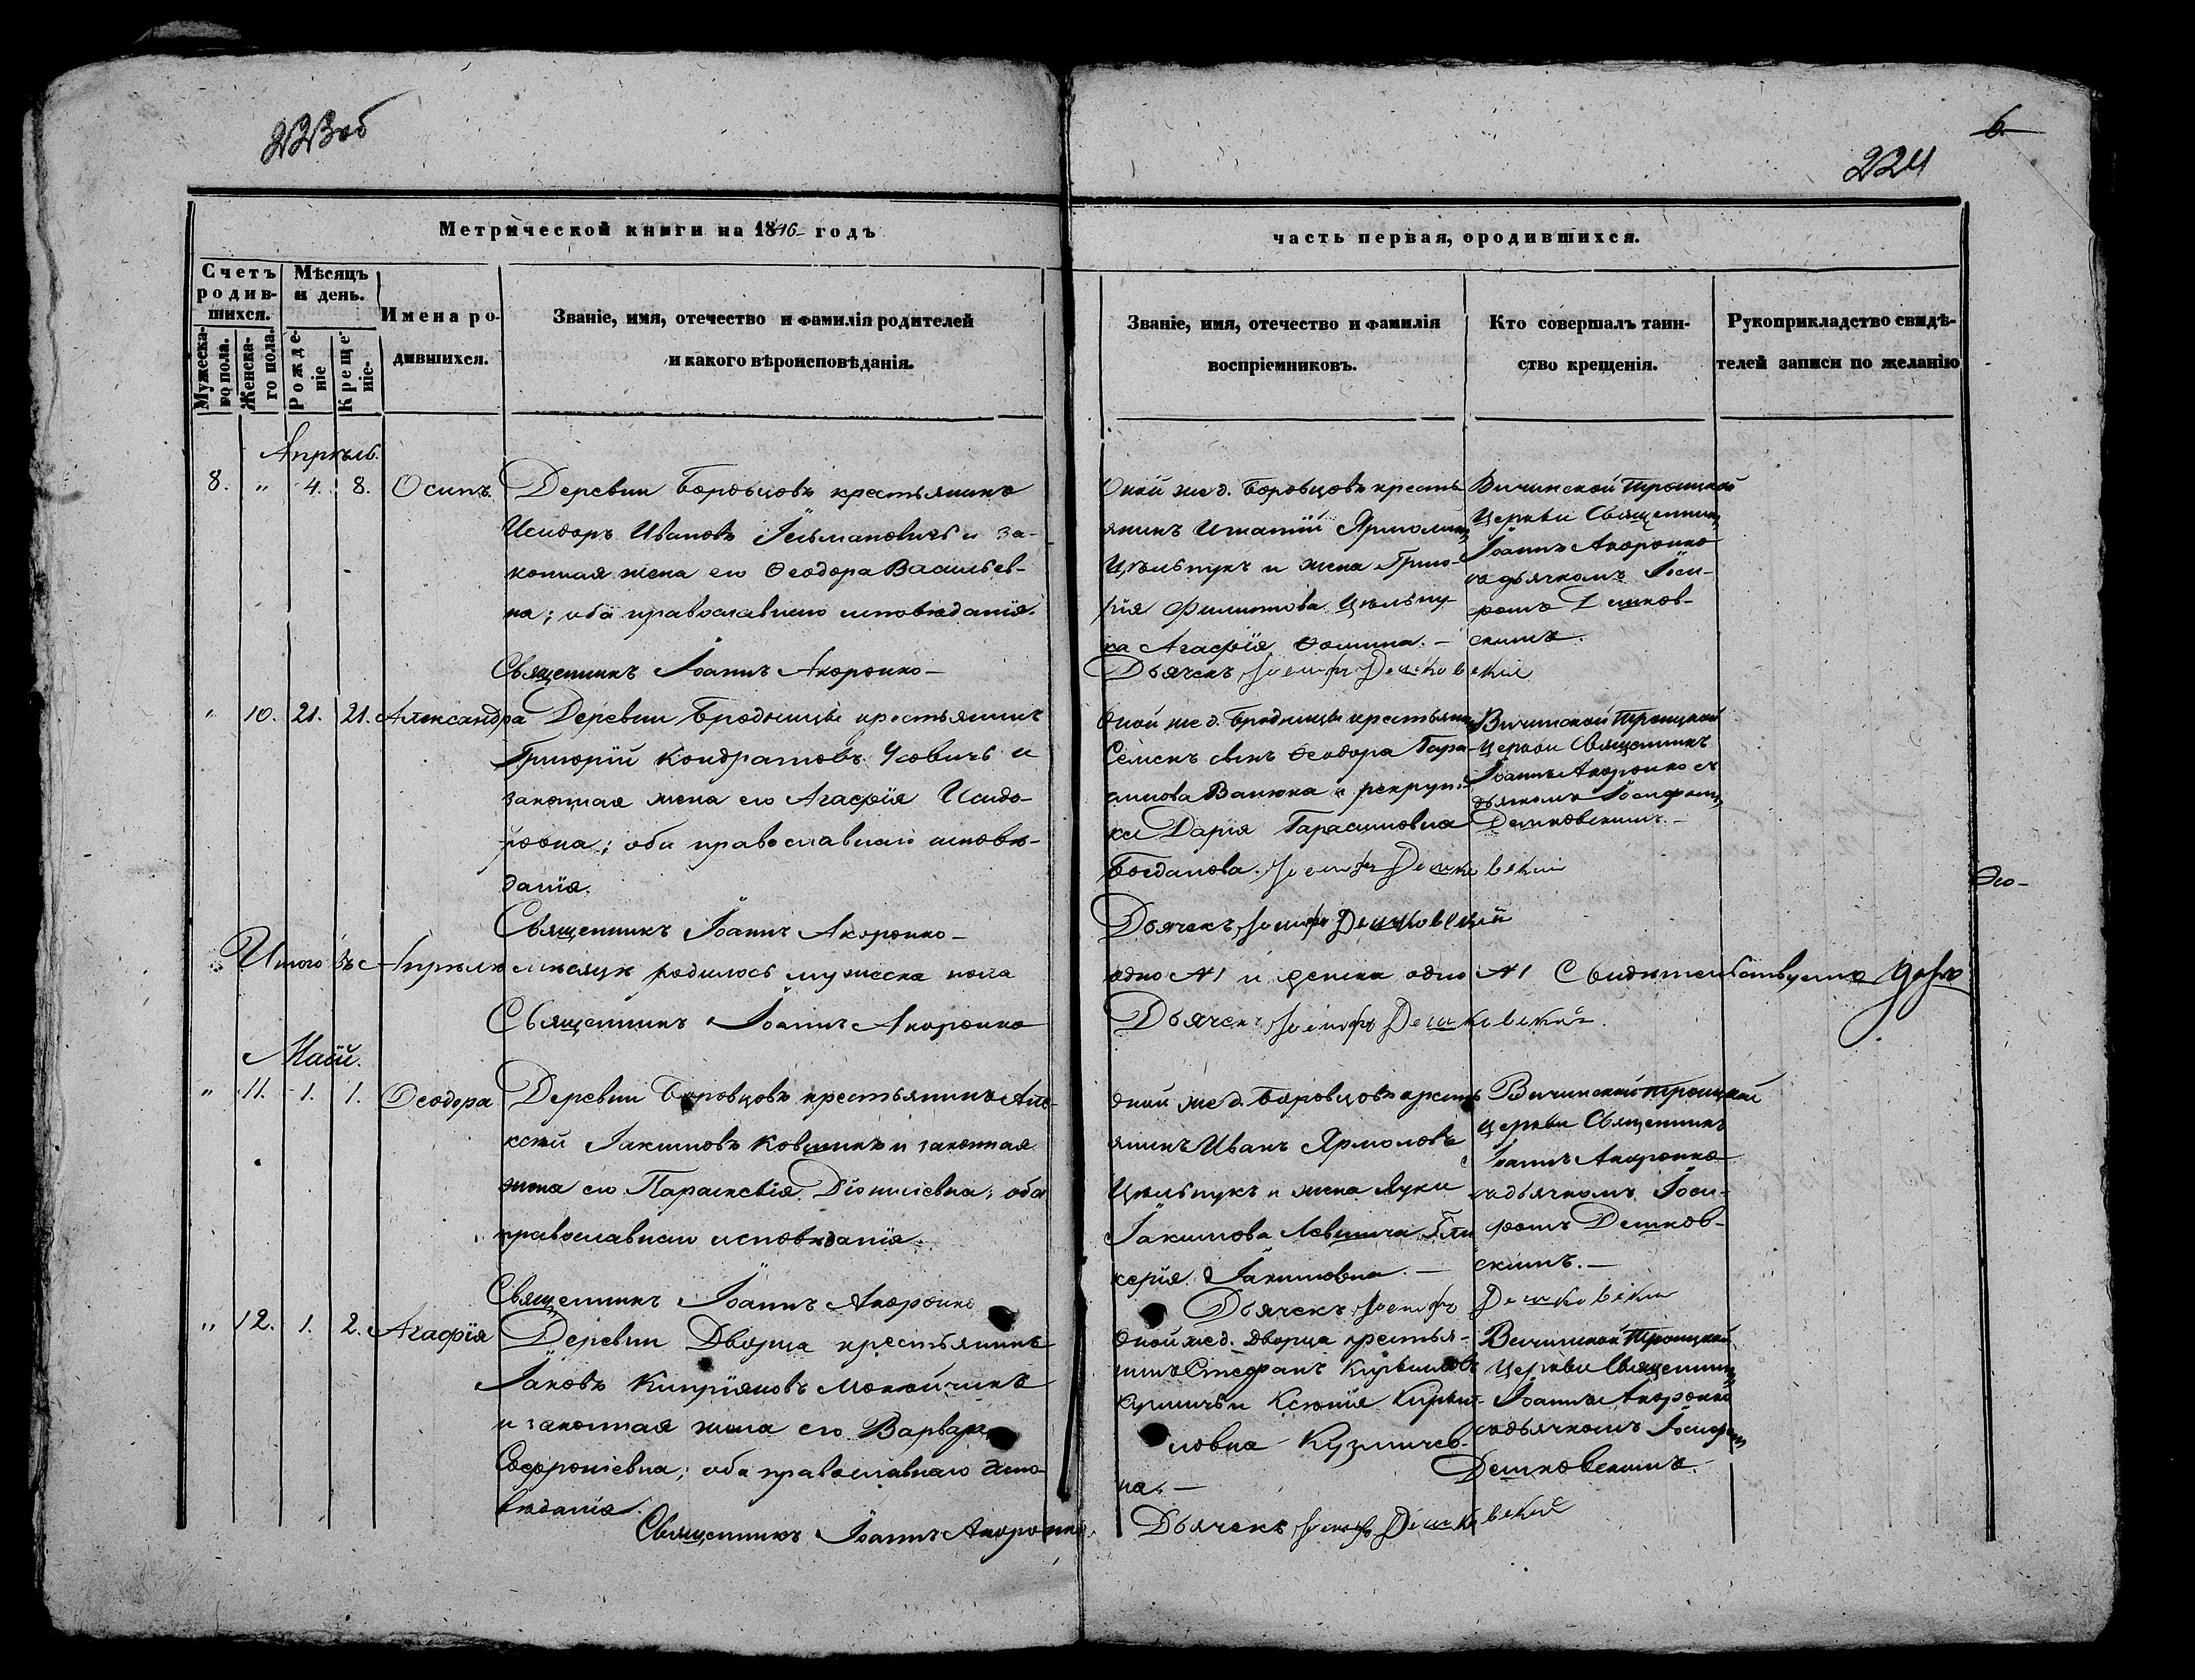 223об
6.
224
Метрической книги на 1846 годъ
часть первая, о родившихся.
Счетъ родив-шихся.
Мужеска-го пола.
Женска-го пола.
Мѣсяцъ и день.
Рожде-ніе
Креще-ніе.
Имена ро-дившихся.
Званіе, имя, отечество и фамилія родителей
и какого вѣроисповѣданія.
Званіе, имя, отечество и фамилія
воспріемниковъ.
Кто совершалъ таин-
ство крещенія.
Рукоприкладство свидѣ-
телей записи по желанію
Апрѣль.
8. " 4. 8. Осипъ.
Деревни Боровцовъ крестьянинъ
Исидоръ Ивановъ и за-
конная жена его Ѳеодора Васильев-
на; оба православнаго исповѣданія.
Священникъ Іоаннъ
Оной же д. Боровцовъ кресть
янинъ Игнатій
и жена Григо-
рія Филипова
ка Агафія Ѳомина. –
Дьячекъ Іосифъ Дешковскій
Вичинской Троицкой
Церкви Священникъ
Іоаннъ
съ дьячкомъ Іоси-
фомъ Дешков-
скимъ.
" 10. 21. 21. Александра
Деревни Бродницы крестьянинъ
Григорій Кондратовъ Усовичъ и
законная жена его Агафія Исидо-
рова; оба православнаго исповѣ-
данія.
Священникъ Іоаннъ
Оной же д. Бродницы крестьянинъ
Семенъ сынъ Ѳеодора Гара-
симова Ванюка и рекрут-
ка Дарія Гарасимовна
Богданова. Іосифъ Дешковскій
Дьячекъ Іосифъ Дешковскій
Вичинской Троицкой
Церкви Священникъ
Іоаннъ съ
дьячкомъ Іосифомъ
Дешковскимъ. –
Ѳео-
Итого въ Апрѣлѣ мѣсяцѣ родилось мужеска пола
одно №1 и женска одно №1 Свидѣтельствуемъ
Священникъ Іоаннъ
Дьячекъ Іосифъ Дешковскій.
Маій.
" 11. 1. 1. Ѳеодора
Деревни Боровцовъ крестьянинъ Але-
ксѣй Іакимовъ и законная
жена его Параскевія Діонисіевна; оба
православнаго исповѣданія.
Священникъ Іоаннъ
Оной же д. Боровцовъ кресть
янинъ Иванъ Ярмоловъ
и жена Луки
Іакимова Левшича Гли
керія Іакимовна. –
Дьячекъ Іосифъ Дешковскій
Вичинской Троицкой
Церкви Священникъ
Іоаннъ
съ дьячкомъ Іоси-
фомъ Дешков-
скимъ. –
" 12. 1. 2. Агафія
Деревни Дворца крестьянинъ
Іаковъ Кипріяновъ
и законная жена его Варвара
Софроніевна; оба православнаго испо-
вѣданія.
Священникъ Іоаннъ
Оной же д. Дворца крестья-
нинъ Стефанъ
Ксенія
Кузмичев-
на. –
Дьячекъ Іосифъ Дешковскій
Вичинской Троицкой
Церкви Священникъ
Іоаннъ
съ дьячкомъ Іосифомъ
Дешковскимъ. –